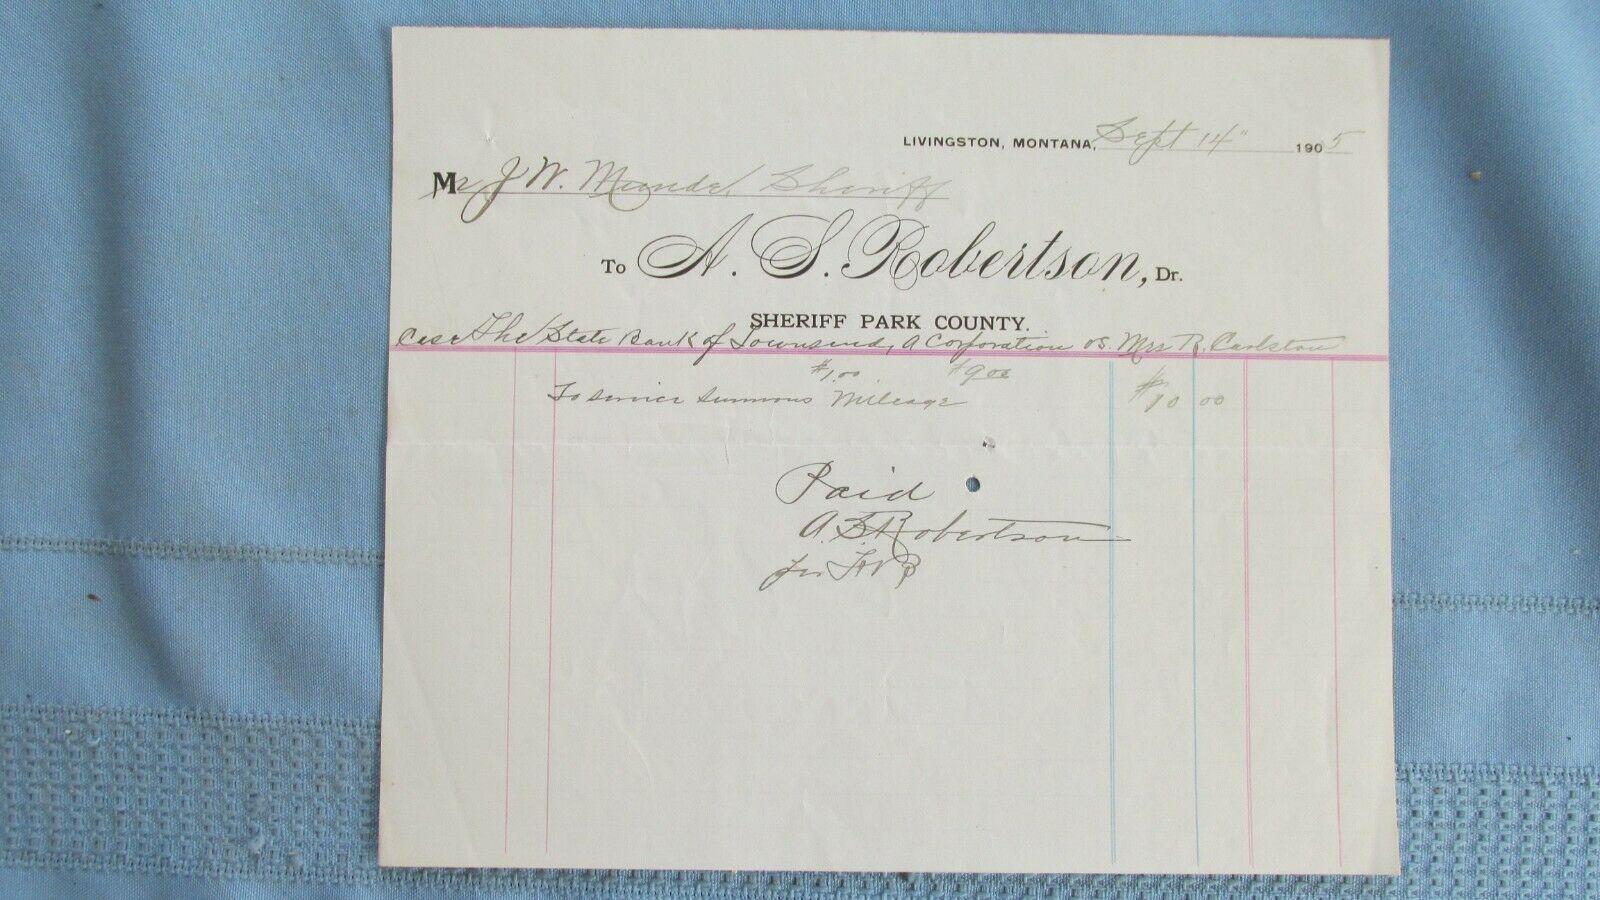 LIVINGSTON, MONTANA, Sept 14" 1905
Mr J W. Mundel Sheriff
To A. S. Robertson, Dr.
SHERIFF PARK COUNTY.
Case The State Bank of Townsend, A Corporation vs. Mrs R. Carlston
$1.00 $9.00
To service summons Mileage $10 00
Paid
A. S. Robertson